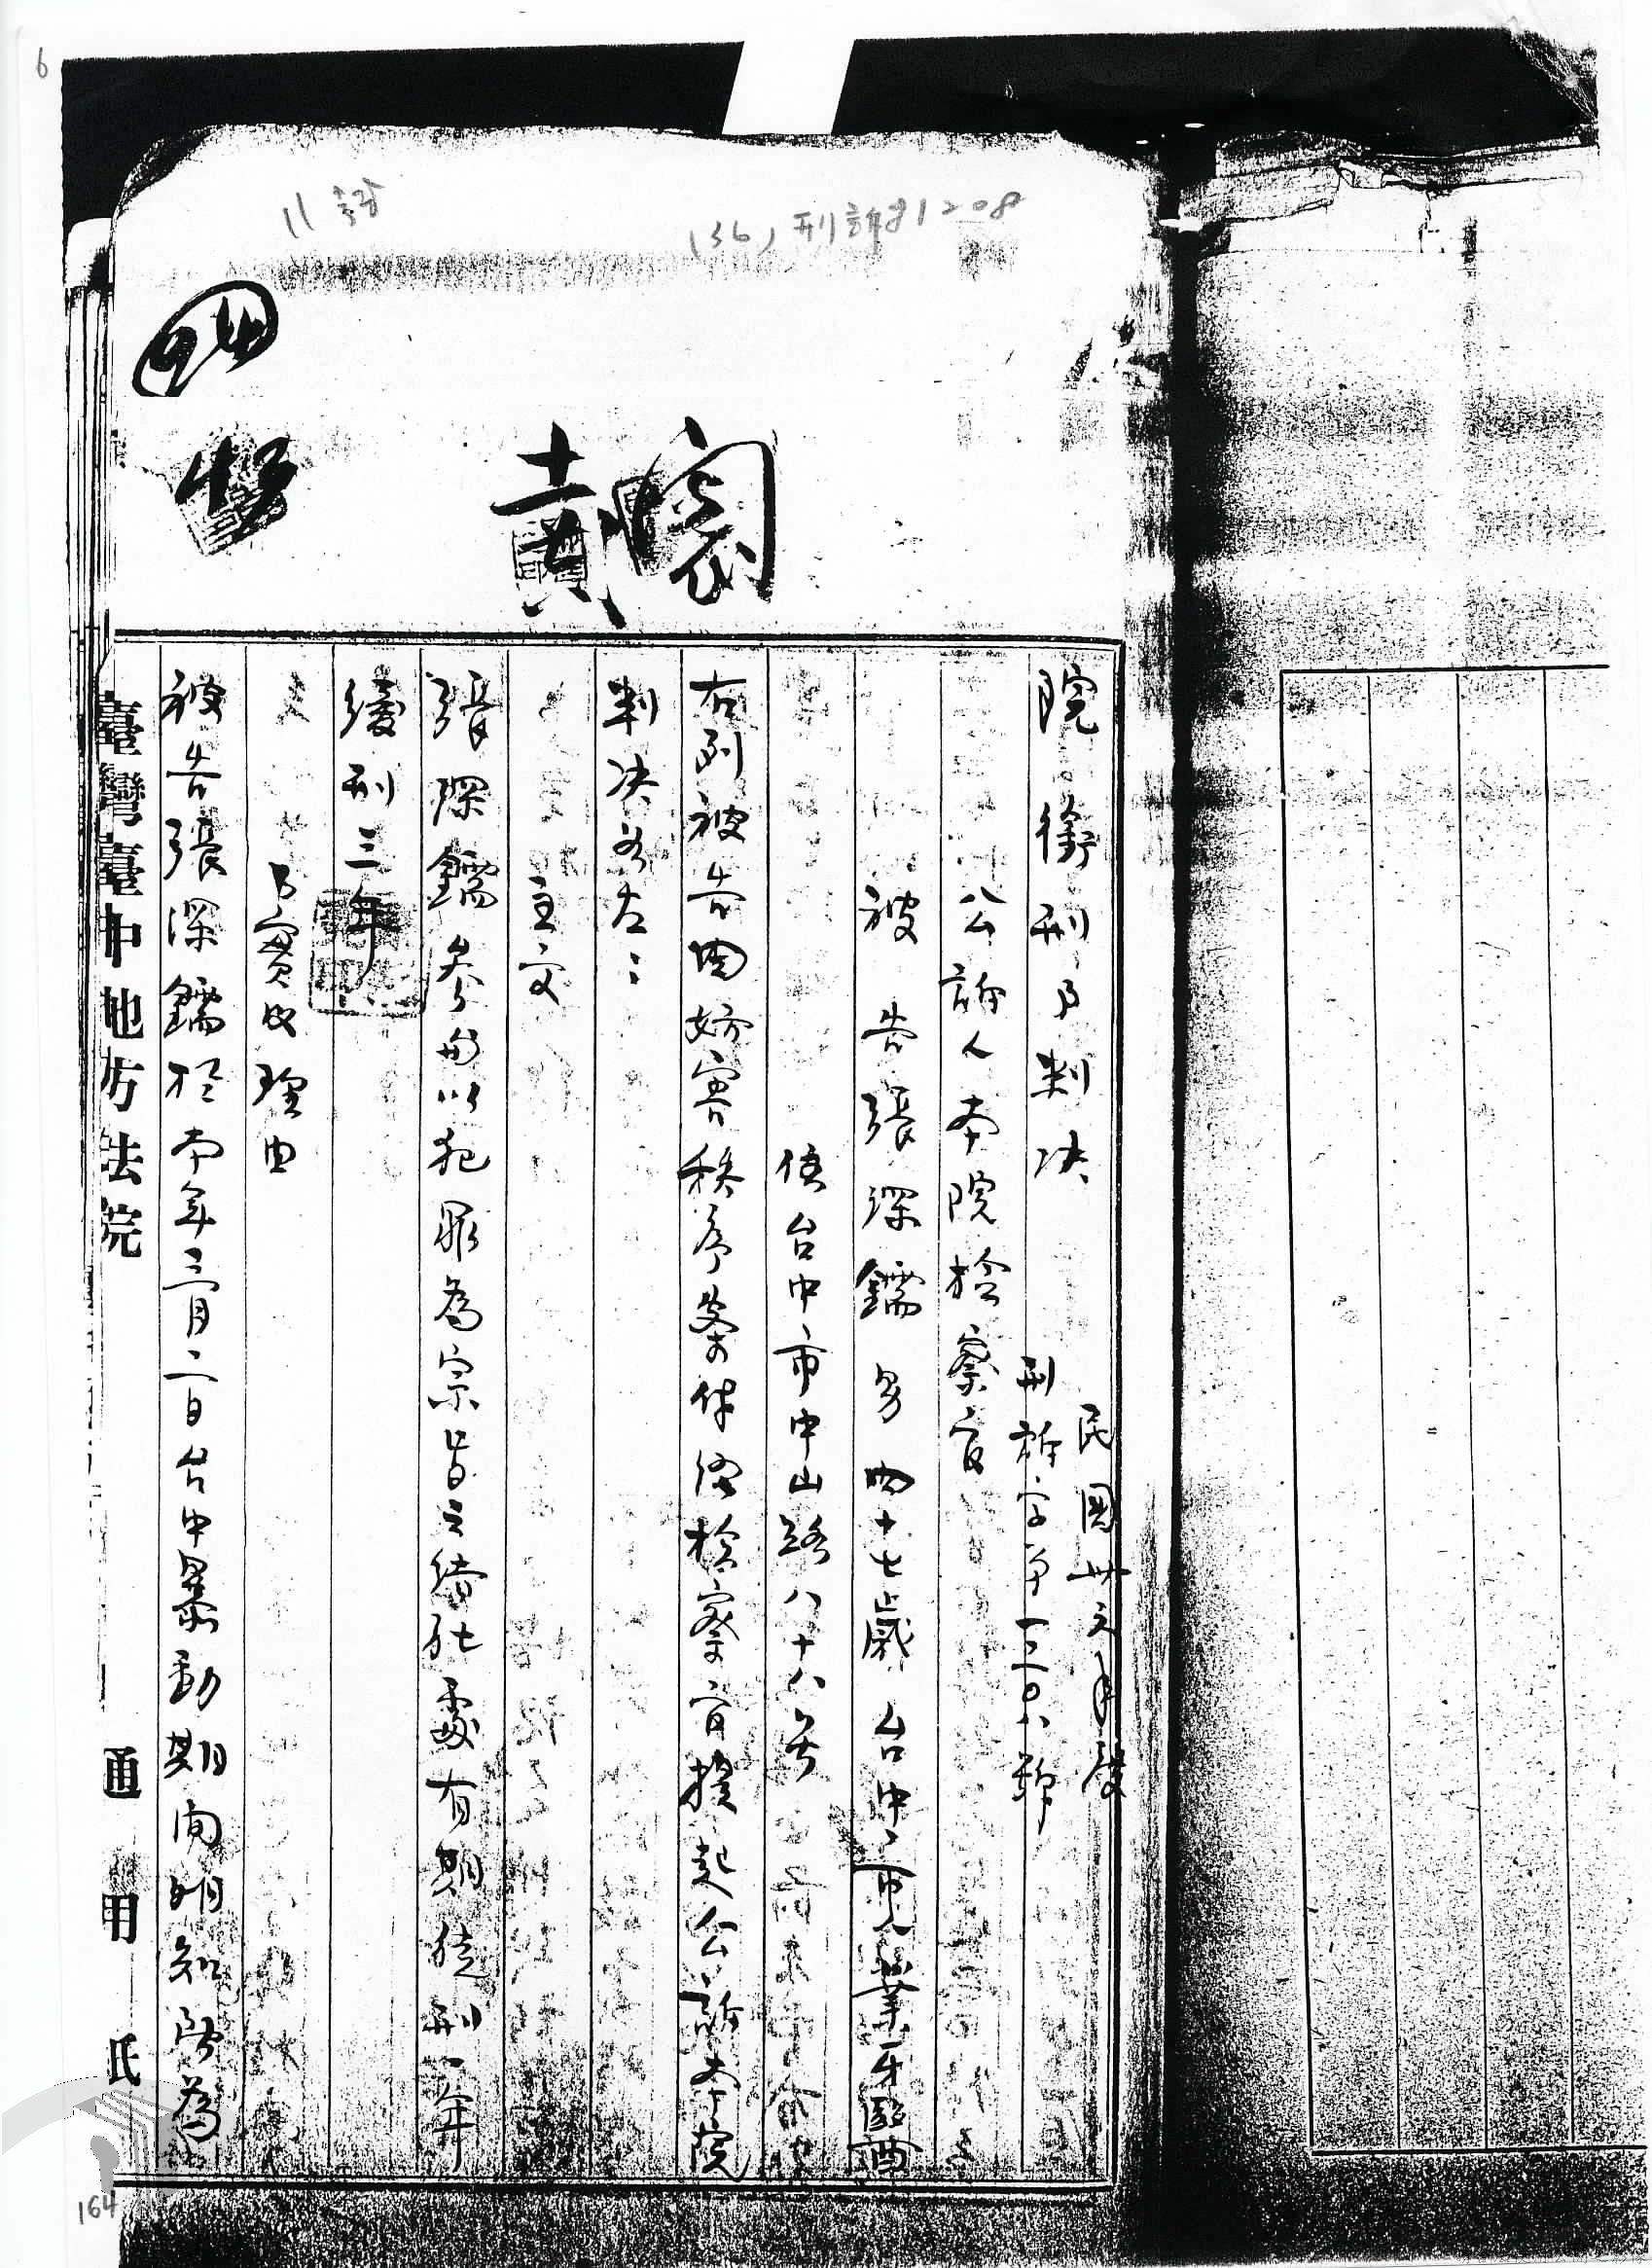 6
11 
(36) 刑訴81208
黃
院銜刑事判決
民國卅六年度
刑訴字第一二〇八號
公訴人本院檢察官
被告張深鑐 男 四十七歲 台中市 業牙醫
住台中市中山路八十八号
右列被告因妨害秩序案件經檢察官提起公訴本院
判決如左:
主文
張深鑐參與以犯罪為宗旨之結社處有期徒刑一年
緩刑三年
事實及理由
被告張深鑐於本年三月二日台中暴動期間明知所為
臺灣臺中地方法院
通用
164